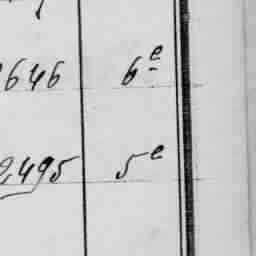 646 6e
2,495 5e